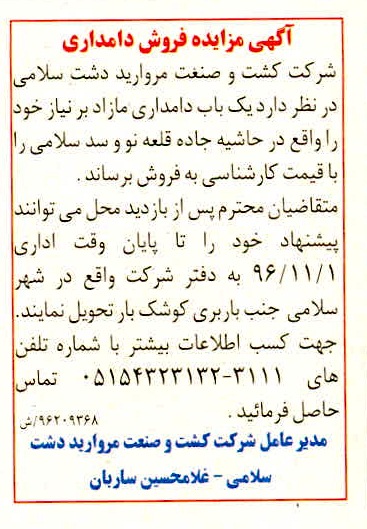 آگهی مزایده فروش دامداری
شرکت کشت و صنعت مروارید دشت سلامی
در نظر دارد یک باب دامداری مازاد بر نیاز خود
را واقع در حاشیه جاده قلعه نو و سد سلامی را
با قیمت کارشناسی به فروش برساند .
متقاضیان محترم پس از بازدید محل می توانند
پیشنهاد خود را تا پایان وقت اداری
۹۶/۱۱/۱ به دفتر شرکت واقع در شهر
سلامی جنب باربری کوشک بار تحویل نمایند.
جهت کسب اطلاعات بیشتر با شماره تلفن
های ۳۱۱۱-۰۵۱۵۴۳۲۳۱۳۲ تماس
حاصل فرمائید .
۹۶۲۰۹۳۶۸/ش
مدیر عامل شرکت کشت و صنعت مروارید دشت
سلامی - غلامحسین ساربان